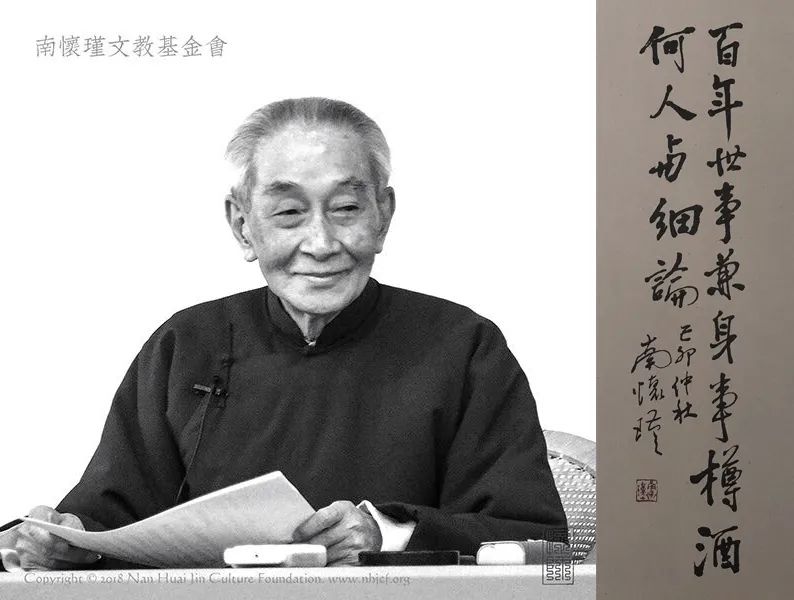 南懷瑾文教基金會
百年世事兼身事樽酒
何人与細論
己卯仲秋
南懷瑾
Copyright © 2018 Nan Huai Jin Culture Foundation. www.nhjcf.org